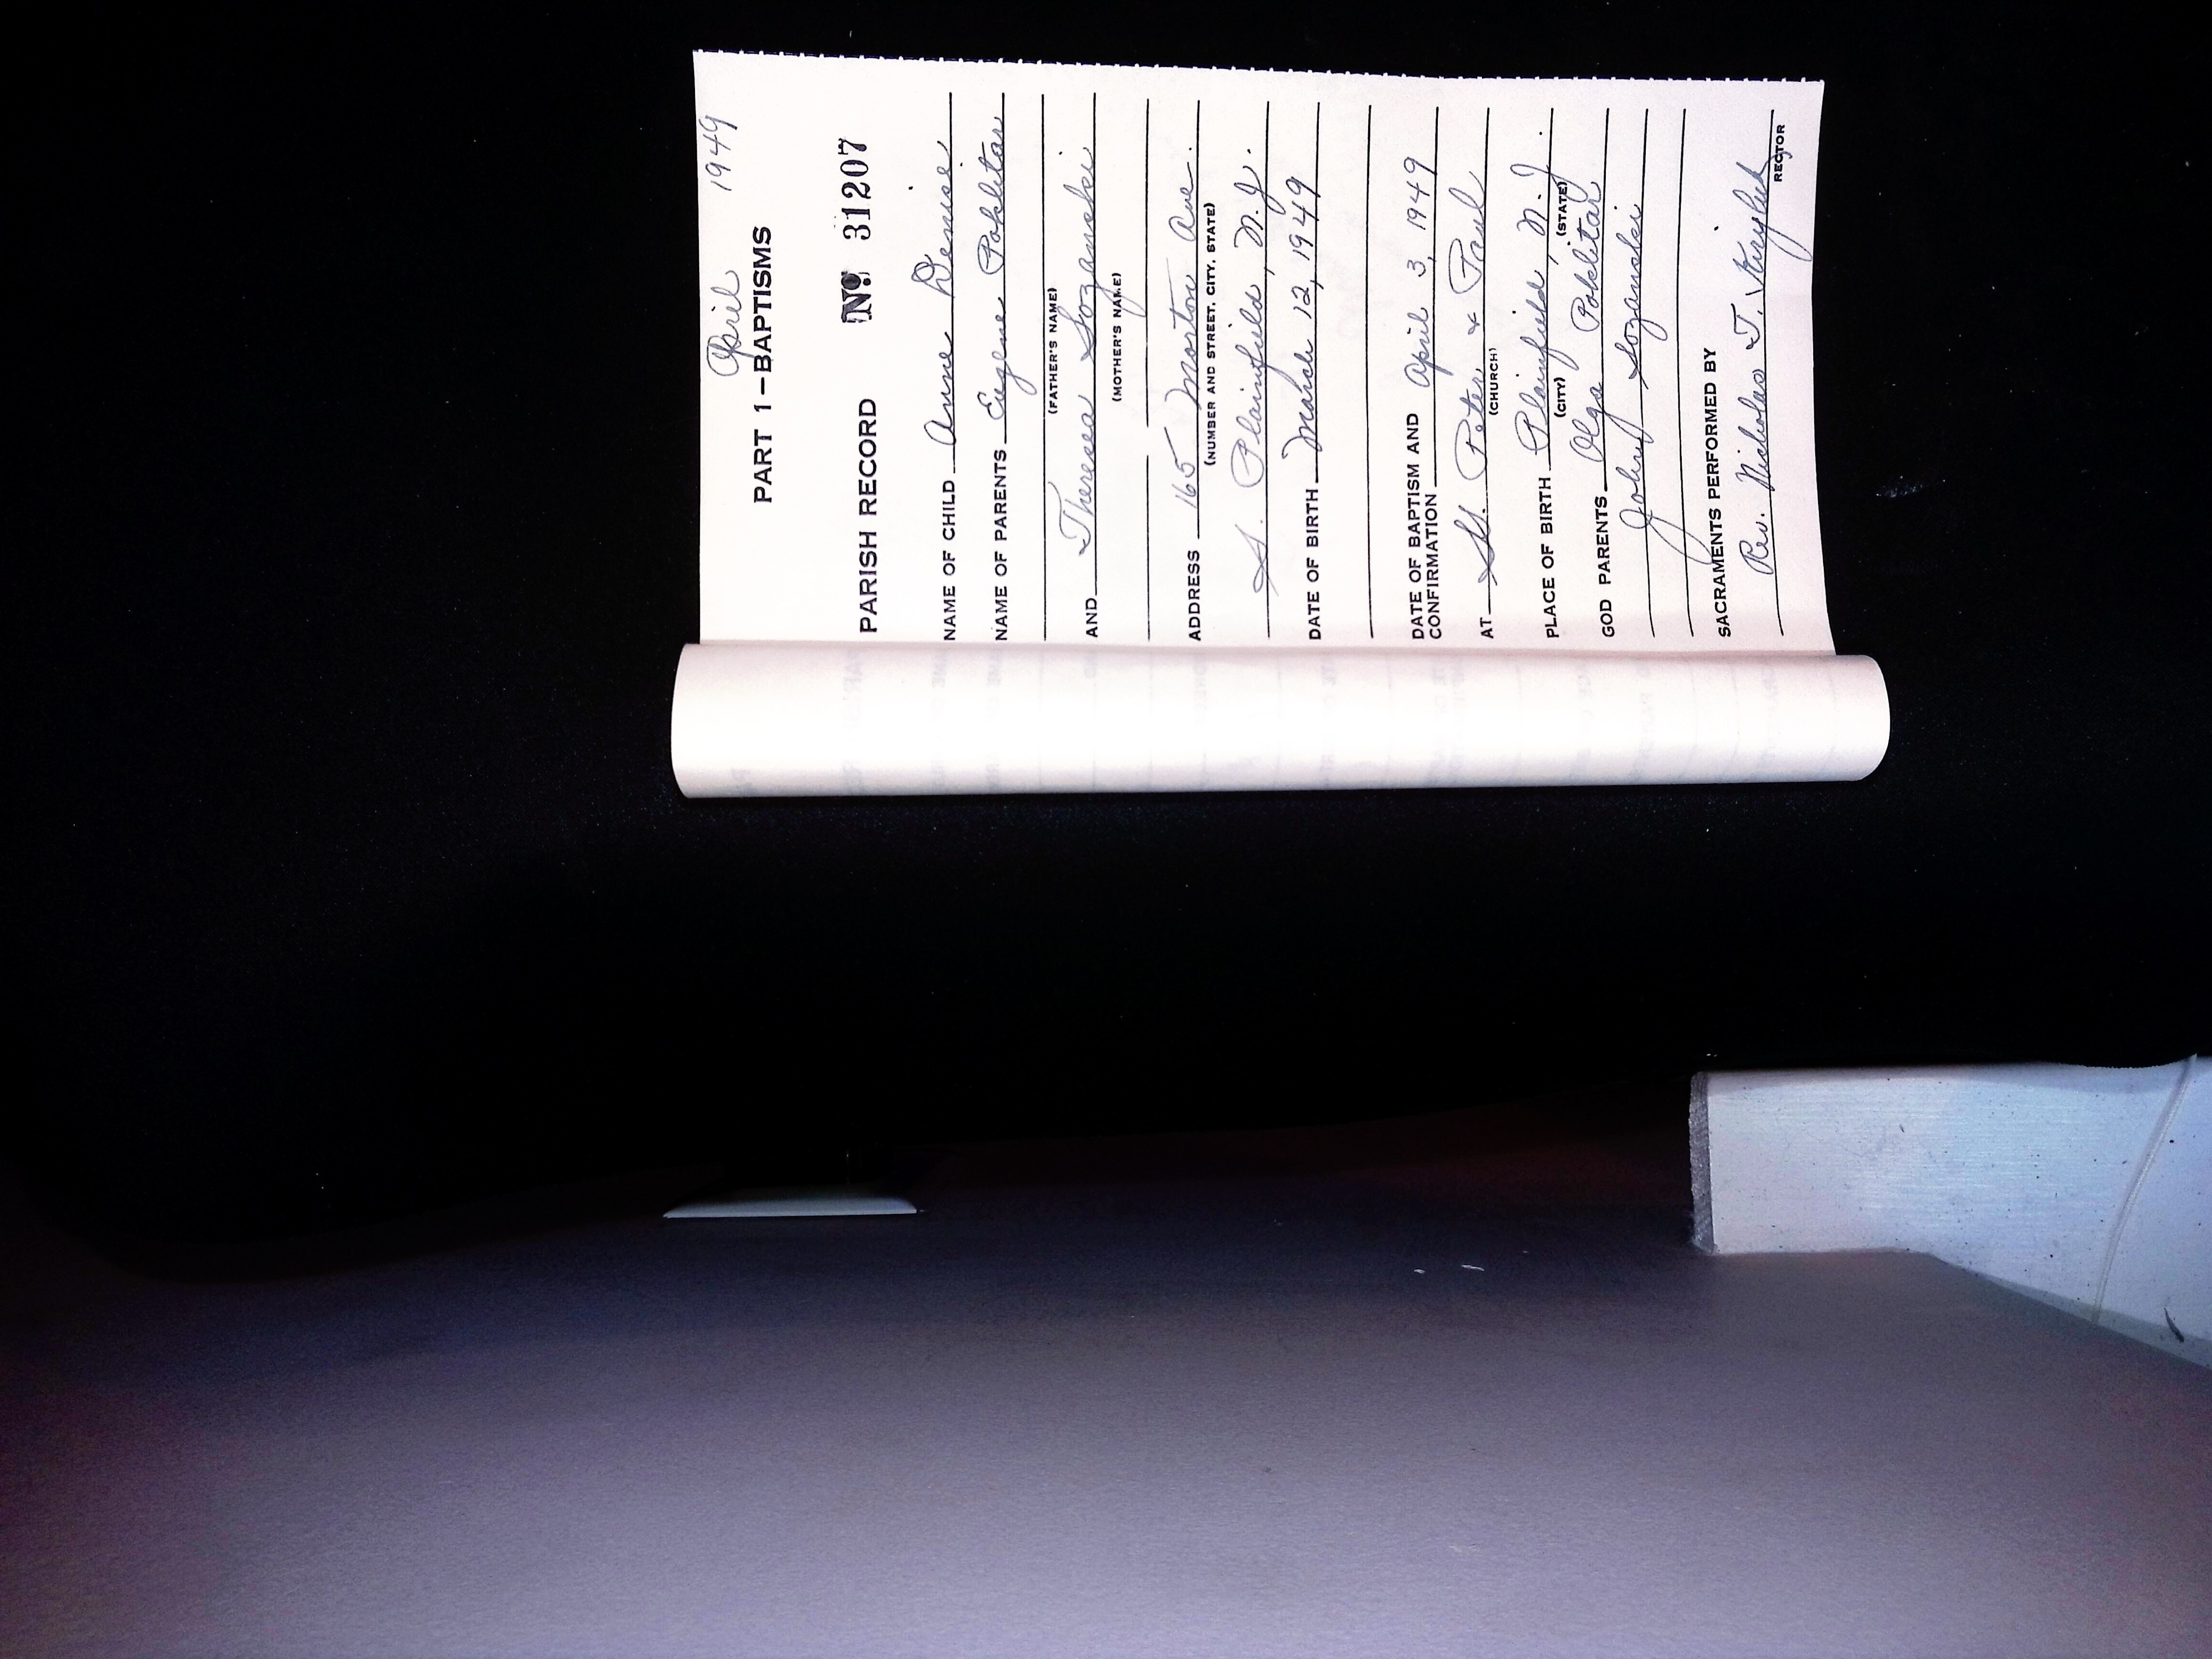 April 1949
PART 1—BAPTISMS
PARISH RECORD No. 31207
NAME OF CHILD Anne Denise
NAME OF PARENTS Eugene Poklitar
(FATHER'S NAME)
AND Theresa Sozanski
(MOTHER'S NAME)
ADDRESS 165 Morton Ave.
(NUMBER AND STREET, CITY, STATE)
S. Plainfield, N.J.
DATE OF BIRTH March 12, 1949
DATE OF BAPTISM AND
CONFIRMATION April 3, 1949
AT SS. Peter & Paul
(CHURCH)
PLACE OF BIRTH Plainfield, N.J.
(CITY) (STATE)
GOD PARENTS Olga Poklitar
John Sozanski
SACRAMENTS PERFORMED BY
Rev. Nicholas T. Kiryluk
RECTOR